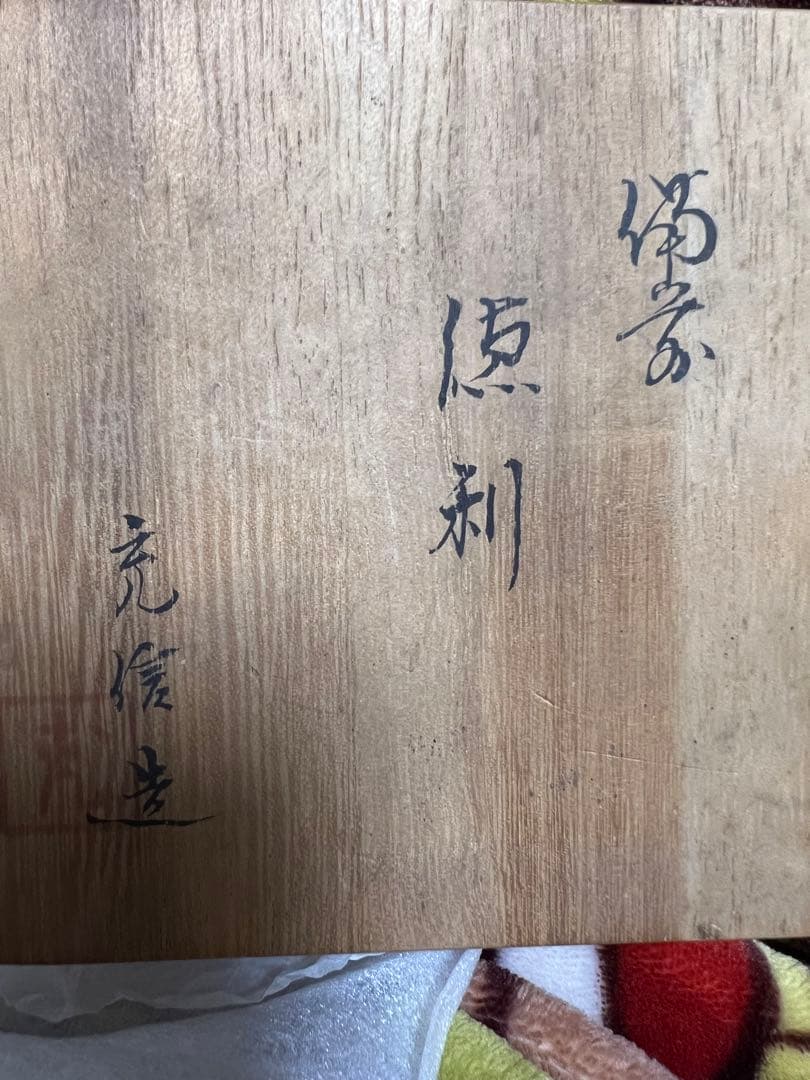 備前
徳利
充信造